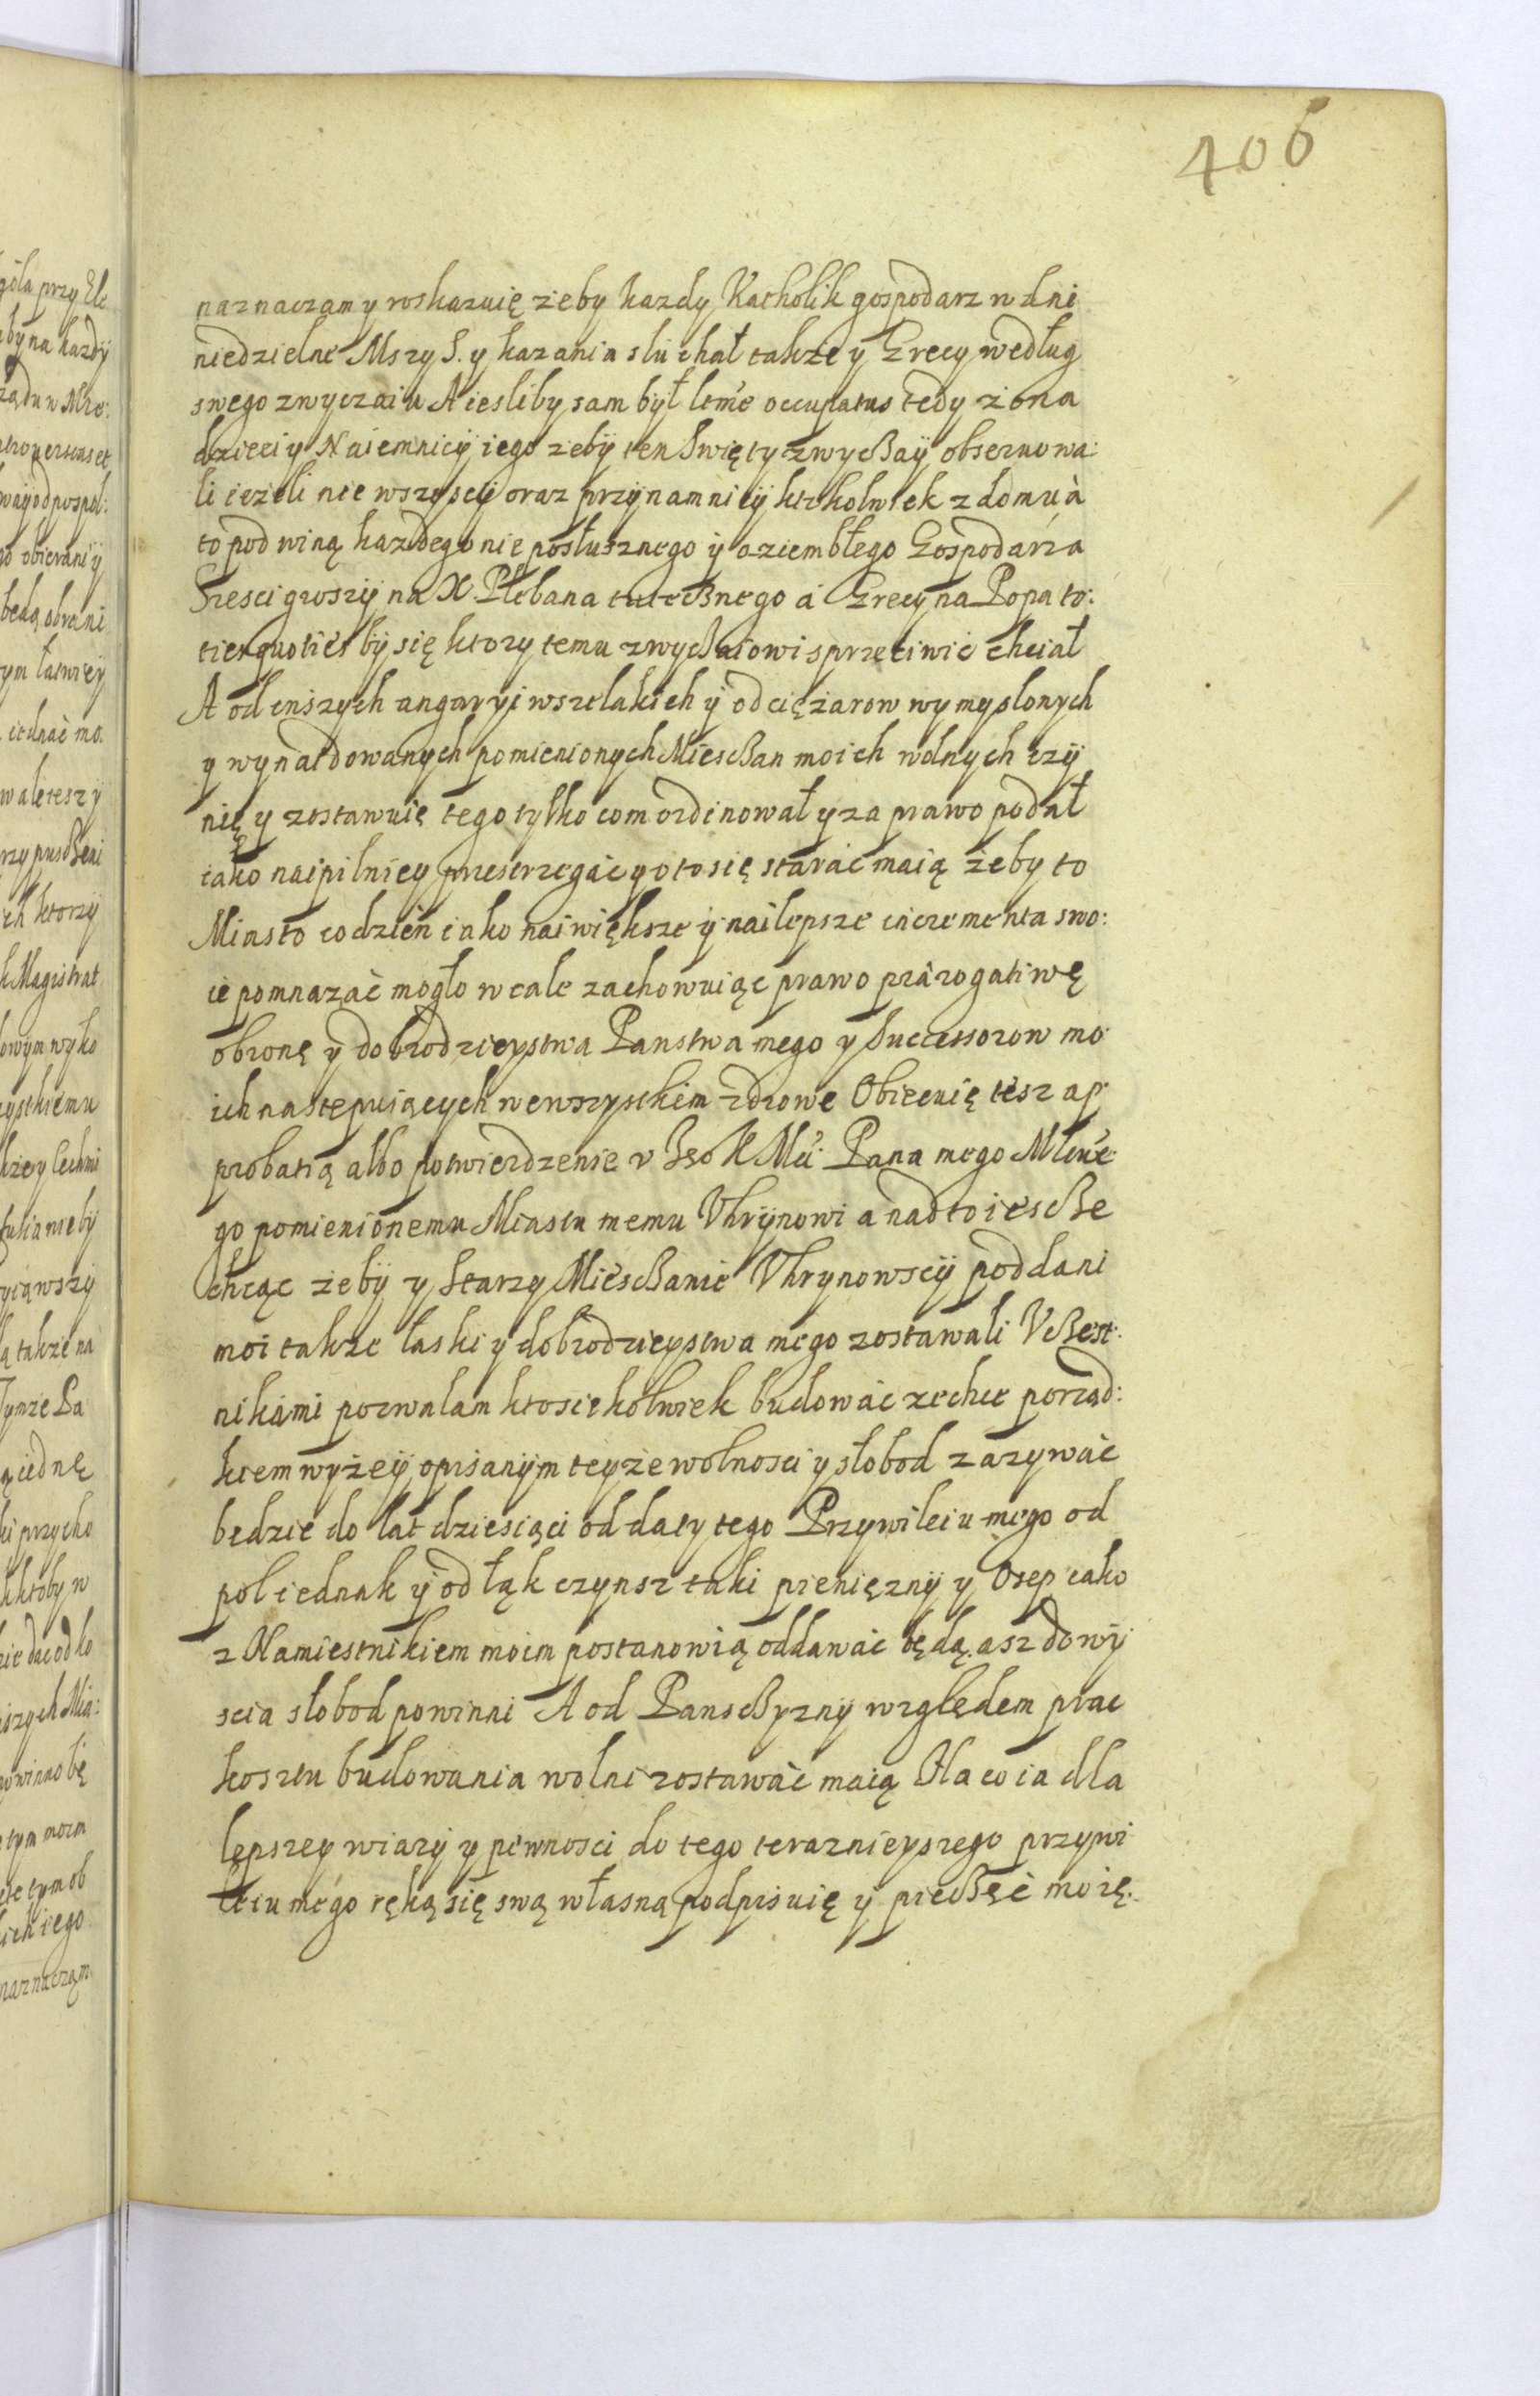 406
naznaczam y roskazuię zieby kazdy Katholik gospodarz w dni
niedzielne Mszy S. y kazania słuchał takze y Grecy według
swego zwyczaiu A iesliby sam był ltme occupatus tedy żona
dzieci y Naiemnicÿ iego zebÿ ten Swięty zwyczaÿ obseruowa:
li ieżeli nie wszyscÿ oraz przÿnamnieÿ ktokolwiek z domu à
to pod winą kazdego nie posłusznego ÿ oziembłego Gospodarza
Szesci groszÿ na X. Plebana tutecznego a Grecy na Popa to:
ties quoties bÿ się ktory temu zwyczaiowi sprzeciwić chciał
A od inszych angaryi wszelakich ÿ od ciężarow wymyslonych
y wynaidowanych pomienionych Miesczan moich wolnych czÿ
nię y zostawuię tego tylko com ordinował y za prawo podał
iako naipilniey przestrzegać y o to się starać maią żeby to
Miasto codzień iako naiwiększe ÿ nailepsze incrementa swo:
ie pomnazać mogło wcale zachowuiąc prawo prærogatiwę
obronę ÿ dobrodzieystwa Panstwa mego y Successorow mo
ich następuiących wewszystkim zdrowe Obiecuię tesz ap
probatią albo potwierdzenie v Jeo K Mći Pana mego Młwe
go pomienionemu Miastu memu Vhrÿnowi a nadto iescze
chcąc żebÿ y Starzy Miesczanie Vhrynowscÿ poddani
moi takze łaski y dobrodzieystwa mego zostawali Vczest:
nikami pozwalam ktosiekolwiek budować zechce porząd:
kiem wyżeÿ opisanÿm teyże wolnosci y słobod zazywać
będzie do lat dziesiąci od daty tego Przywileiu mego od
pol iednak ÿ od łąk czynsz taki pieniężnÿ y Osep iako
z Namiestnikiem moim postanowią oddawać będą asz do wÿ
scia słobod powinni A od Pansczyznÿ względem prac
kosztu budowania wolni zostawać maią Na co ia dla
lepszey wiarÿ y pewnosci do tego teraznieyszego przywi
leiu mego ręką się swą własną podpisuię ÿ pieczęć moię.